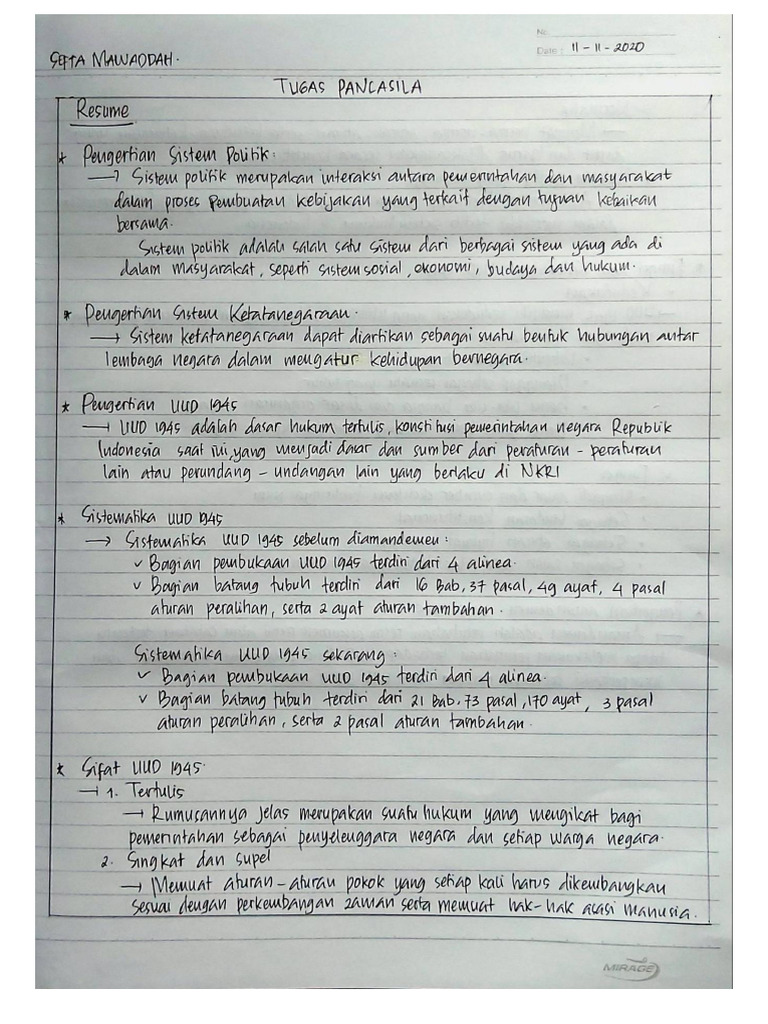 No.
Date: 11 - 11 - 2020
SEFTA MAWADDAH.
TUGAS PANCASILA
Resume
* Pengertian Sistem Politik:
→ Sistem politik merupakan interaksi antara pemerintahan dan masyarakat
dalam proses pembuatan kebijakan yang terkait dengan tujuan kebaikan
bersama.
Sistem politik adalah salah satu sistem dari berbagai sistem yang ada di
dalam masyarakat, seperti sistem sosial, ekonomi, budaya dan hukum.
* Pengertian Sistem Ketatanegaraan.
→ Sistem ketatanegaraan dapat diartikan sebagai suatu bentuk hubungan antar
lembaga negara dalam mengatur kehidupan bernegara.
* Pengertian UUD 1945
→ UUD 1945 adalah dasar hukum tertulis, konstitusi pemerintahan negara Republik
Indonesia saat ini, yang menjadi dasar dan sumber dari peraturan - peraturan
lain atau perundang - undangan lain yang berlaku di NKRI
* Sistematika UUD 1945
→ Sistematika UUD 1945 sebelum diamandemen:
✓ Bagian pembukaan UUD 1945 terdiri dari 4 alinea.
✓ Bagian batang tubuh terdiri dari 16 Bab, 37 pasal, 49 ayat, 4 pasal
aturan peralihan, serta 2 ayat aturan tambahan.
Sistematika UUD 1945 sekarang:
✓ Bagian pembukaan UUD 1945 terdiri dari 4 alinea.
✓ Bagian batang tubuh terdiri dari 21 Bab, 73 pasal, 170 ayat, 3 pasal
aturan peralihan, serta 2 pasal aturan tambahan.
* Sifat UUD 1945.
→ 1. Tertulis
→ Rumusannya jelas merupakan suatu hukum yang mengikat bagi
pemerintahan sebagai penyelenggara negara dan setiap warga negara.
2. Singkat dan supel
→ Memuat aturan - aturan pokok yang setiap kali harus dikembangkan
sesuai dengan perkembangan zaman serta memuat hak-hak asasi manusia.
MIRAGE